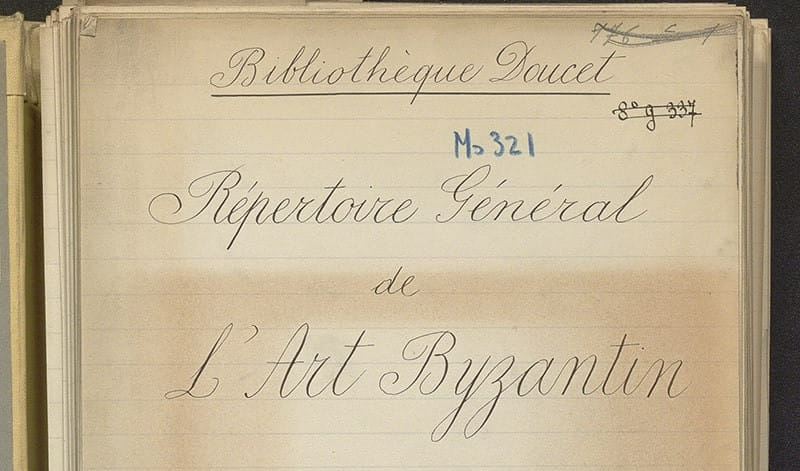 Bibliothèque Doucet
8° g 337
Ms 321
Répertoire Général
de
L'Art Byzantin